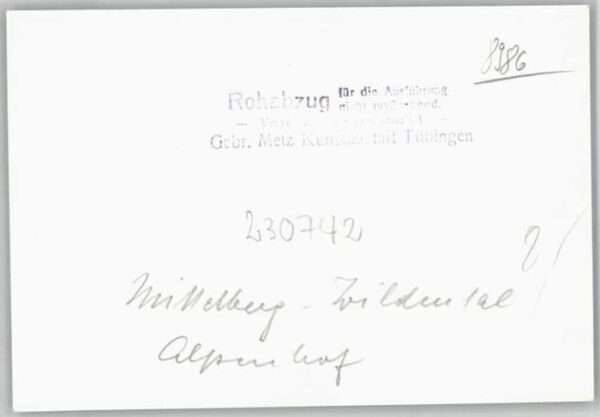 8986
Rohabzug für die Ausführung
nicht maßgebend.
Gebr. Metz Kunstanstalt Tübingen
230742
Mittelberg - Wildental
Alpenhof